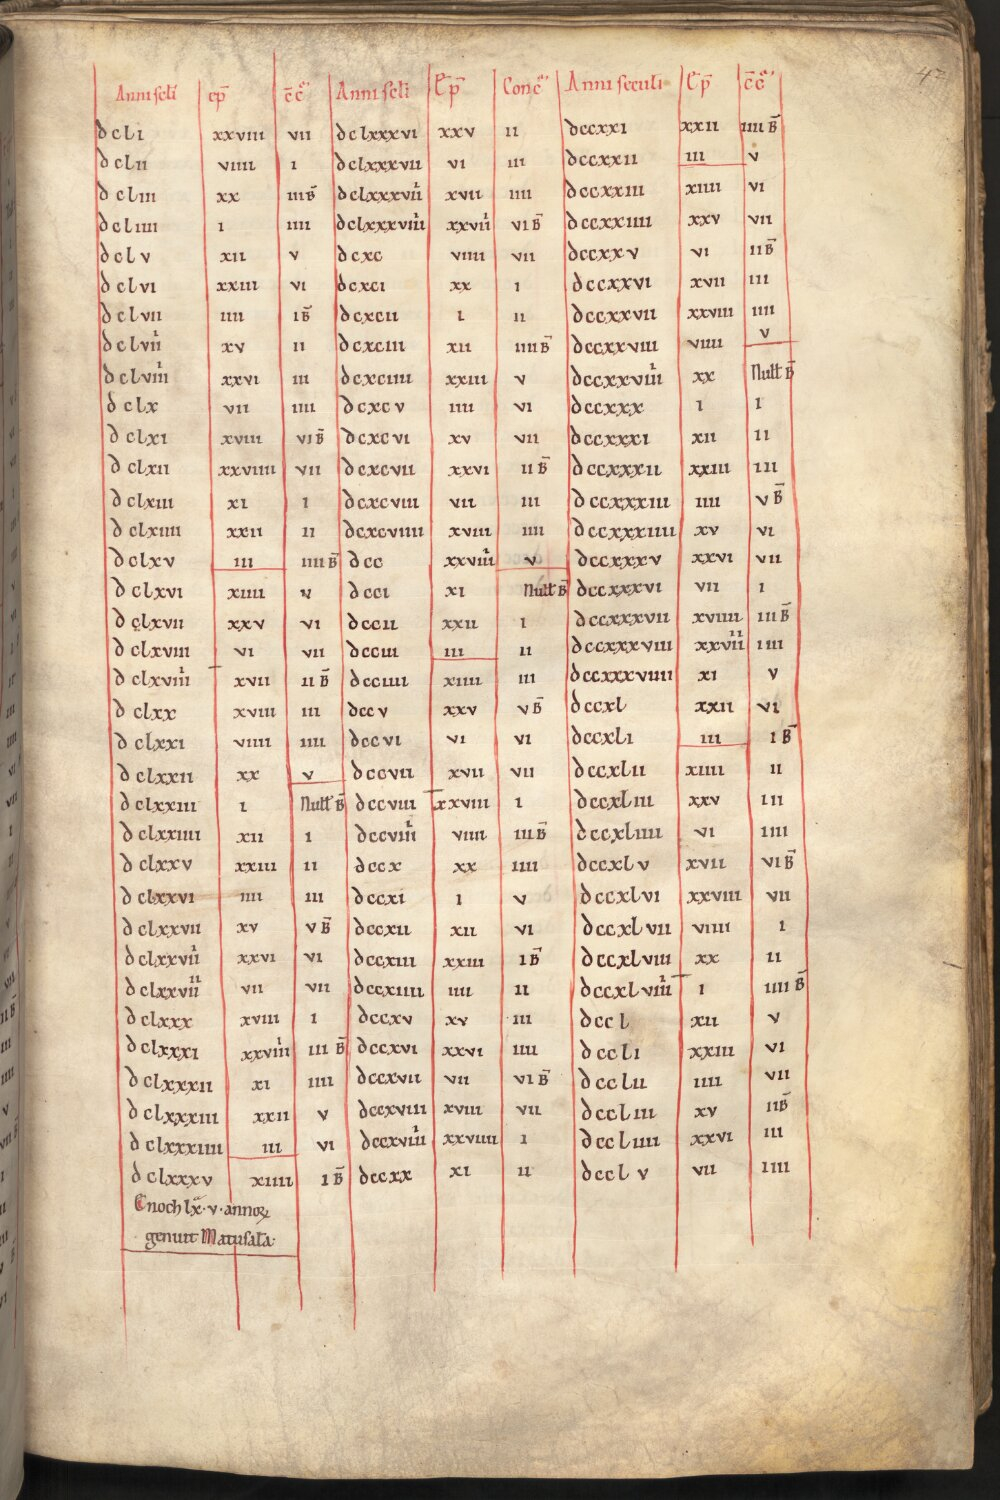 47
Anni scli ep̄ c̄c̄ Anni scli Ep̄ Conc̄ Anni seculi Ep̄ c̄c̄
dcli xxviii vii dclxxxvi xxv ii dccxxi xxii iiii B̄
dclii viiii i dclxxxvii vi iii dccxxii iii v
dcliii xx iii B̄ dclxxxviii xvii iiii dccxxiii xiiii vi
dcliiii i iiii dclxxxviiii xxviii vi B̄ dccxxiiii xxv vii
dclv xii v dcxc viiii vii dccxxv vi ii B̄
dclvi xxiii vi dcxci xx i dccxxvi xvii iii
dclvii iiii i B̄ dcxcii i ii dccxxvii xxviii iiii
dclviii xv ii dcxciii xii iiii B̄ dccxxviii viiii v
dclviiii xxvi iii dcxciiii xxiii v dccxxviiii xx Null B̄
dclx vii iiii dcxcv iiii vi dccxxx i i
dclxi xviii vi B̄ dcxcvi xv vii dccxxxi xii ii
dclxii xxviiii vii dcxcvii xxvi ii B̄ dccxxxii xxiii iii
dclxiii xi i dcxcviii vii iii dccxxxiii iiii v B̄
dclxiiii xxii ii dcxcviiii xviii iiii dccxxxiiii xv vi
dclxv iii iiii B̄ dcc xxviiii v dccxxxv xxvi vii
dclxvi xiiii v dcci xi Null B̄ dccxxxvi vii i
dclxvii xxv vi dccii xxii i dccxxxvii xviiii iii B̄
dclxviii vi vii dcciii iii ii dccxxxviii xxviiii iiii
dclxviiii xvii ii B̄ dcciiii xiiii iii dccxxxviiii xi v
dclxx xviii iii dccv xxv v B̄ dccxl xxii vi
dclxxi viiii iiii dccvi vi vi dccxli iii i B̄
dclxxii xx v dccvii xvii vii dccxlii xiiii ii
dclxxiii i Null B̄ dccviii xxviii i dccxliii xxv iii
dclxxiiii xii i dccviiii viiii iii B̄ dccxliiii vi iiii
dclxxv xxiii ii dccx xx iiii dccxlv xvii vi B̄
dclxxvi iiii iii dccxi i v dccxlvi xxviii vii
dclxxvii xv v B̄ dccxii xii vi dccxlvii viiii i
dclxxviii xxvi vi dccxiii xxiii i B̄ dccxlviii xx ii
dclxxviiii vii vii dccxiiii iiii ii dccxlviiii i iiii B̄
dclxxx xviii i dccxv xv iii dccl xii v
dclxxxi xxviiii iii B̄ dccxvi xxvi iiii dccli xxiii vi
dclxxxii xi iiii dccxvii vii vi B̄ dcclii iiii vii
dclxxxiii xxii v dccxviii xviii vii dccliii xv ii B̄
dclxxxiiii iii vi dccxviiii xxviiii i dccliiii xxvi iii
dclxxxv xiiii i B̄ dccxx xi ii dcclv vii iiii
Enoch lx·v·annoꝝ
genuit Matusala·